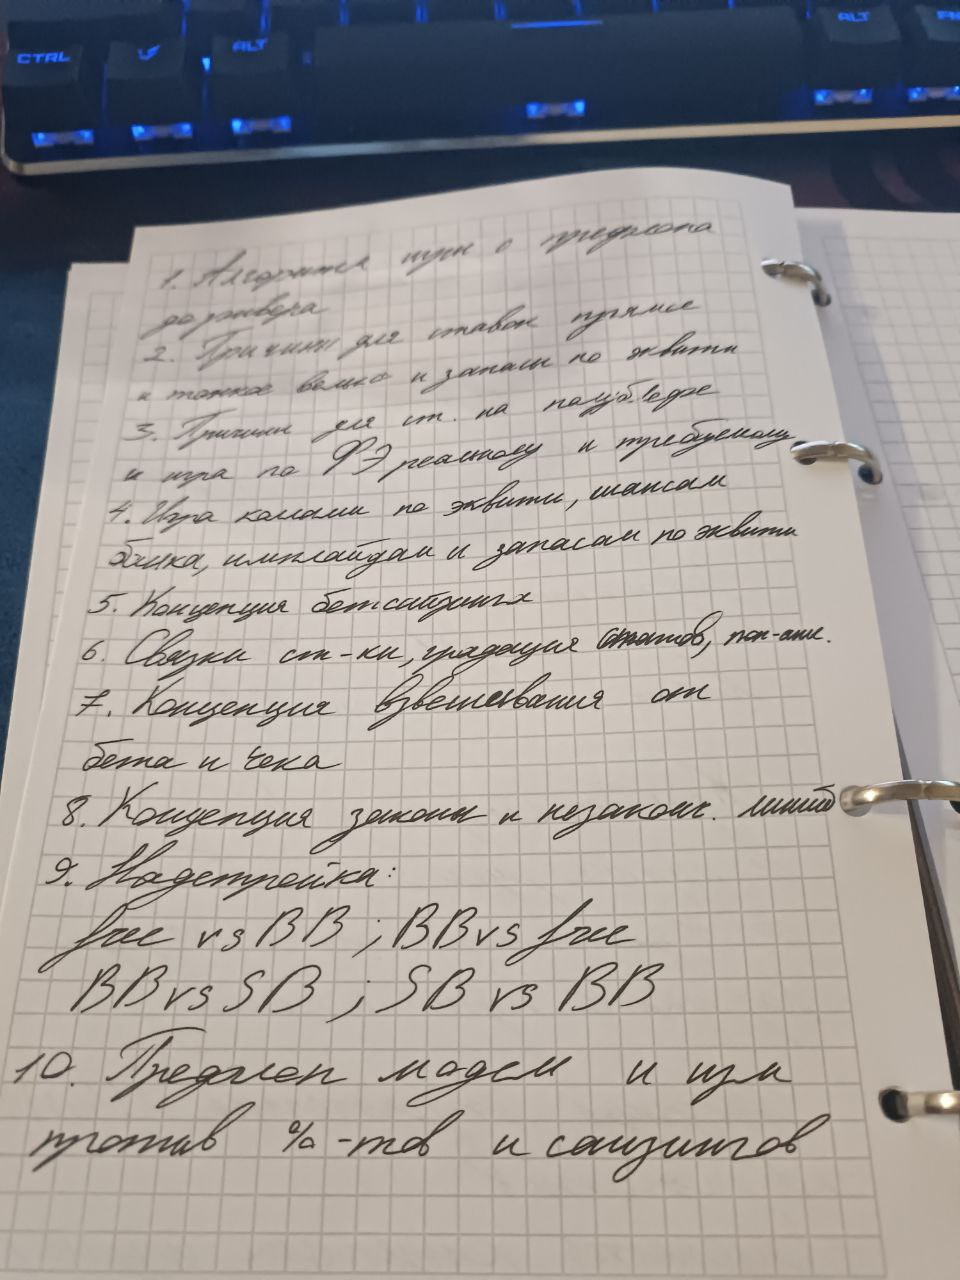 CTRL
ALT
ALT
1. Алгоритм игры с префлопа
до ривера
2. Причины для ставок прямые
и тонкое велью и запасы по эквити
3. Причины для ст. на полублефе
и игра по ФЭ реальному и требуемому
4. Игра колами по эквити, шансам
банка, имплайдам и запасам по эквити
5. Концепция бетсайзинга
6. Связки ст-ки, градация статов, поп-
7. Концепция взвешивания от
бета и чека
8. Концепция законн и незаконн.
9. Надстройка:
vs BB ; BB vs
BB vs SB ; SB vs BB
10. Префлоп модели и игра
против %-тов и сайзингов